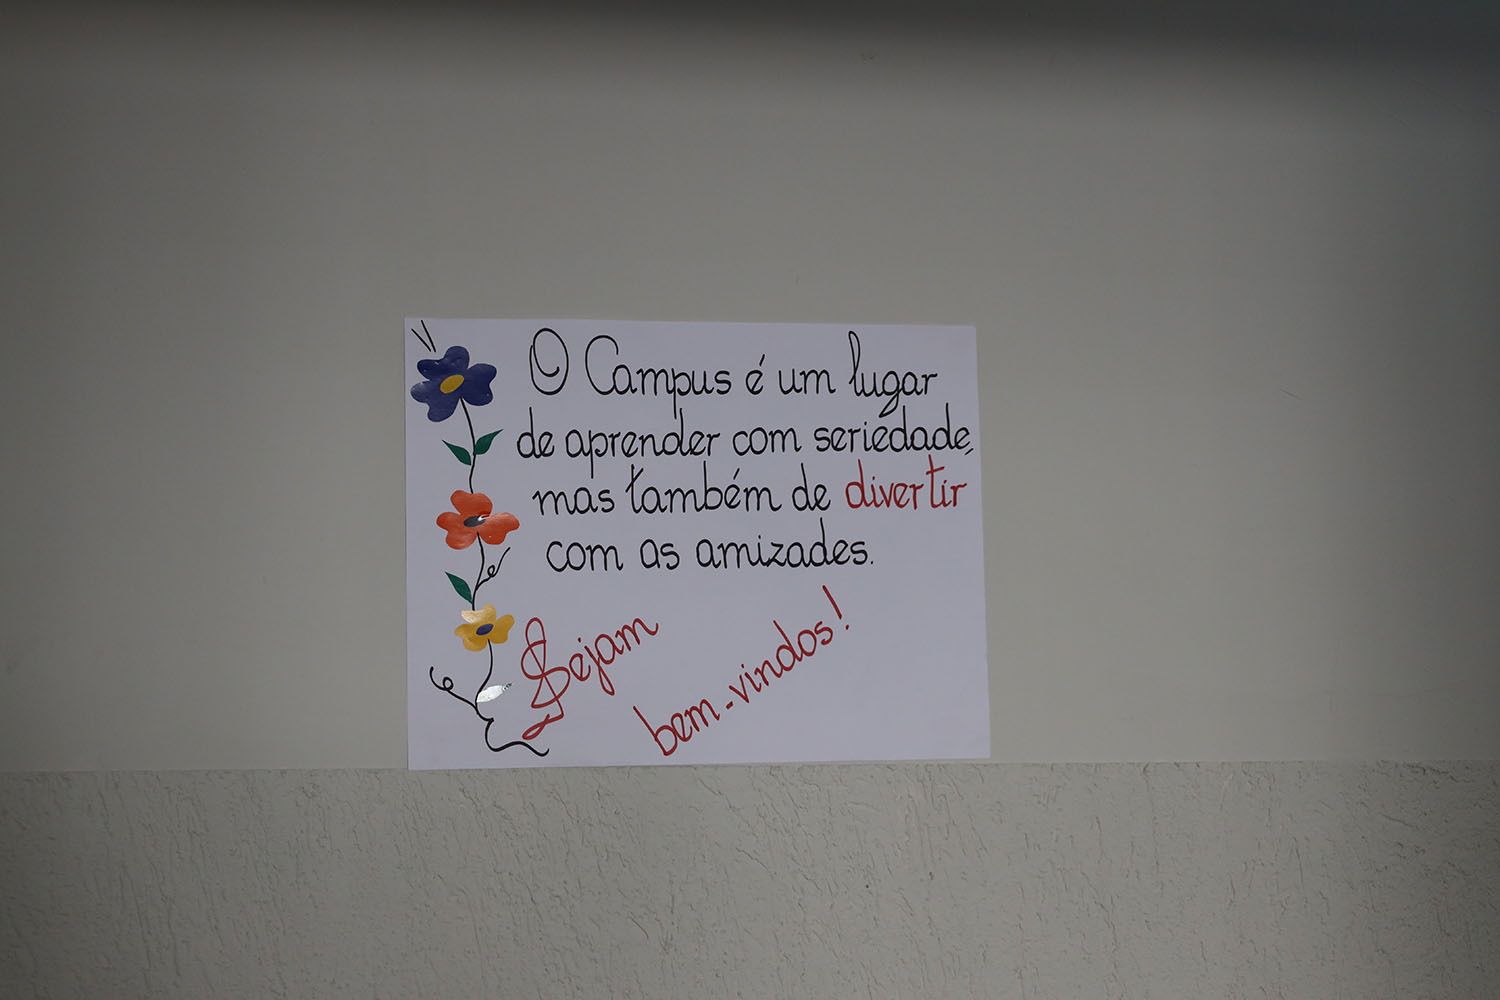 O Campus é um lugar
de aprender com seriedade,
mas também de divertir
com as amizades.
Sejam
bem-vindos!